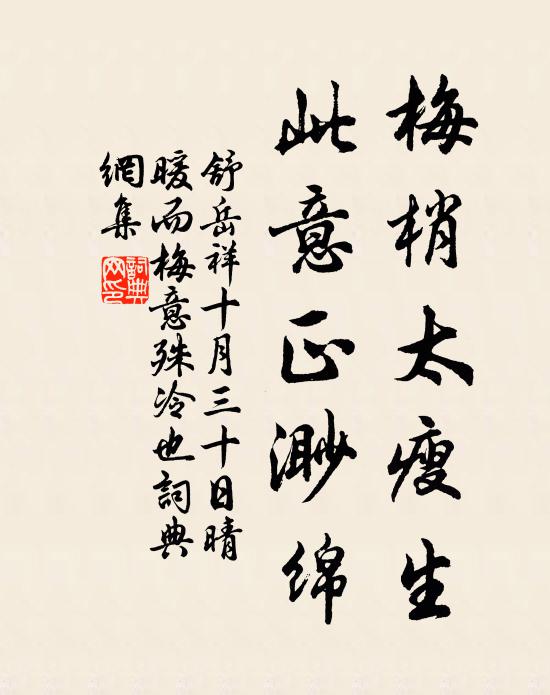 梅梢太瘦生
此意正渺绵
舒岳祥十月三十日晴
暖而梅意殊冷也詞典
網集
詞典
网印